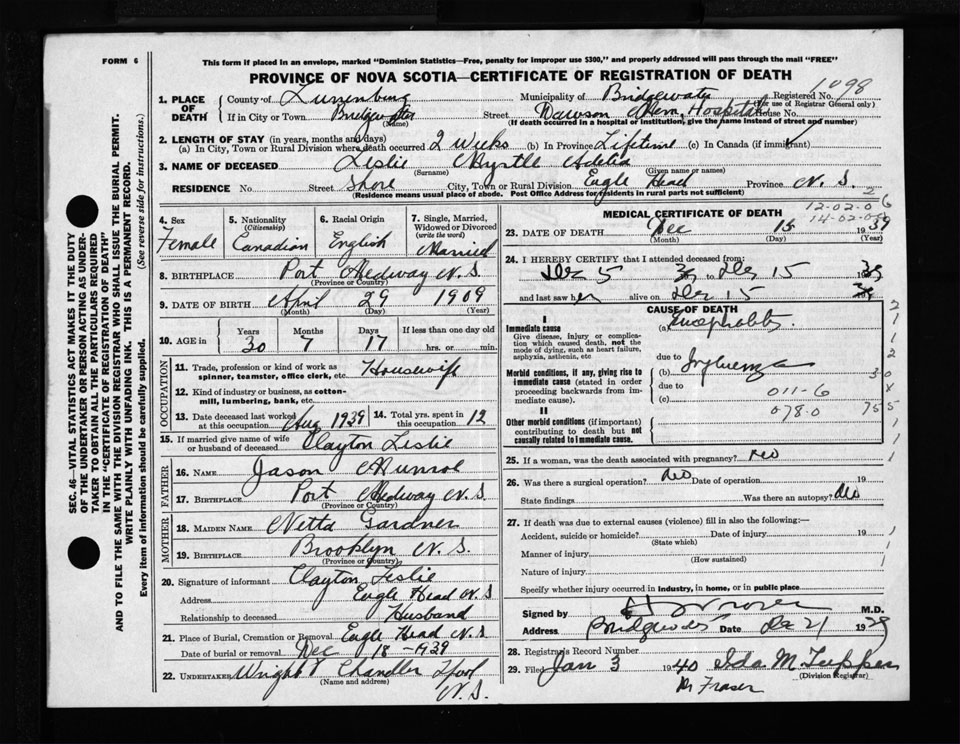 FORM 6
This form if placed in an envelope, marked "Dominion Statistics—Free, penalty for improper use $300," and properly addressed will pass through the mail "FREE"
PROVINCE OF NOVA SCOTIA—CERTIFICATE OF REGISTRATION OF DEATH
1098
1. PLACE OF DEATH { County of Lunenburg Municipality of Bridgewater Registered No.
(For use of Registrar General only)
If in City or Town Bridgewater Street Dawson Mem. Hospital House No.
(Name) (If death occurred in a hospital or institution, give the name instead of street and number)
2. LENGTH OF STAY (in years, months and days)
(a) In City, Town or Rural Division where death occurred 2 weeks (b) In Province Lifetime (c) In Canada (if immigrant)
3. NAME OF DECEASED Leslie Myrtle Adelia
(Surname) (Given name or names)
RESIDENCE No. Street Shore City, Town or Rural Division Eagle Head Province N. S.
(Residence means usual place of abode. Post Office Address for residents in rural parts not sufficient)
SEC. 46—VITAL STATISTICS ACT MAKES IT THE DUTY
OF THE UNDERTAKER OR PERSON ACTING AS UNDER-
TAKER TO OBTAIN ALL THE PARTICULARS REQUIRED
IN THE "CERTIFICATE OF REGISTRATION OF DEATH"
AND TO FILE THE SAME WITH THE DIVISION REGISTRAR WHO SHALL ISSUE THE BURIAL PERMIT.
WRITE PLAINLY WITH UNFADING INK. THIS IS A PERMANENT RECORD.
Every item of information should be carefully supplied. (See reverse side for instructions.)
4. Sex 5. Nationality 6. Racial Origin 7. Single, Married, Widowed or Divorced
(Citizenship) (write the word)
Female Canadian English Married
8. BIRTHPLACE Port Medway N. S.
(Province or Country)
9. DATE OF BIRTH April 29 1909
(Month) (Day) (Year)
10. AGE in Years Months Days If less than one day old
30 7 17 hrs. or min.
OCCUPATION
11. Trade, profession or kind of work as spinner, teamster, office clerk, etc. Housewife
12. Kind of industry or business, as cotton-mill, lumbering, bank, etc.
13. Date deceased last worked at this occupation Aug 1939 14. Total yrs. spent in this occupation 12
15. If married give name of wife or husband of deceased Clayton Leslie
FATHER
16. NAME Jason Munroe
17. BIRTHPLACE Port Medway N. S.
(Province or Country)
MOTHER
18. MAIDEN NAME Netta Gardner
19. BIRTHPLACE Brooklyn N. S.
(Province or Country)
20. Signature of informant Clayton Leslie
Address Eagle Head N. S
Relationship to deceased Husband
21. Place of Burial, Cremation or Removal Eagle Head N. S
Date of burial or removal Dec 18 - 1939
22. UNDERTAKER Wright & Chandler L'pool
(Name and address) N. S.
MEDICAL CERTIFICATE OF DEATH
12-02-06
23. DATE OF DEATH Dec 15 1939
(Month) (Day) (Year)
24. I HEREBY CERTIFY that I attended deceased from:
Dec 5 39 to Dec 15 1939
and last saw her alive on Dec 15 1939
CAUSE OF DEATH
I
Immediate cause (a) Encephalitis
Give disease, injury or complication which caused death, not the mode of dying, such as heart failure, asphyxia, asthenia, etc
due to
Morbid conditions, if any, giving rise to immediate cause (stated in order proceeding backwards from immediate cause). (b) Influenza
due to
(c) 011-6
078.0
II
Other morbid conditions (if important) contributing to death but not causally related to immediate cause.
25. If a woman, was the death associated with pregnancy? No
26. Was there a surgical operation? No Date of operation 19
State findings Was there an autopsy? No
27. If death was due to external causes (violence) fill in also the following:—
Accident, suicide or homicide? Date of injury 19
(State which)
Manner of injury
(How sustained)
Nature of injury
Specify whether injury occurred in industry, in home, or in public place
Signed by M.D.
Address Bridgewater Date Dec 21 1939
28. Registrar's Record Number
29. Filed Jan 3 1940 Ida M Tupper
(Division Registrar)
Dr Fraser